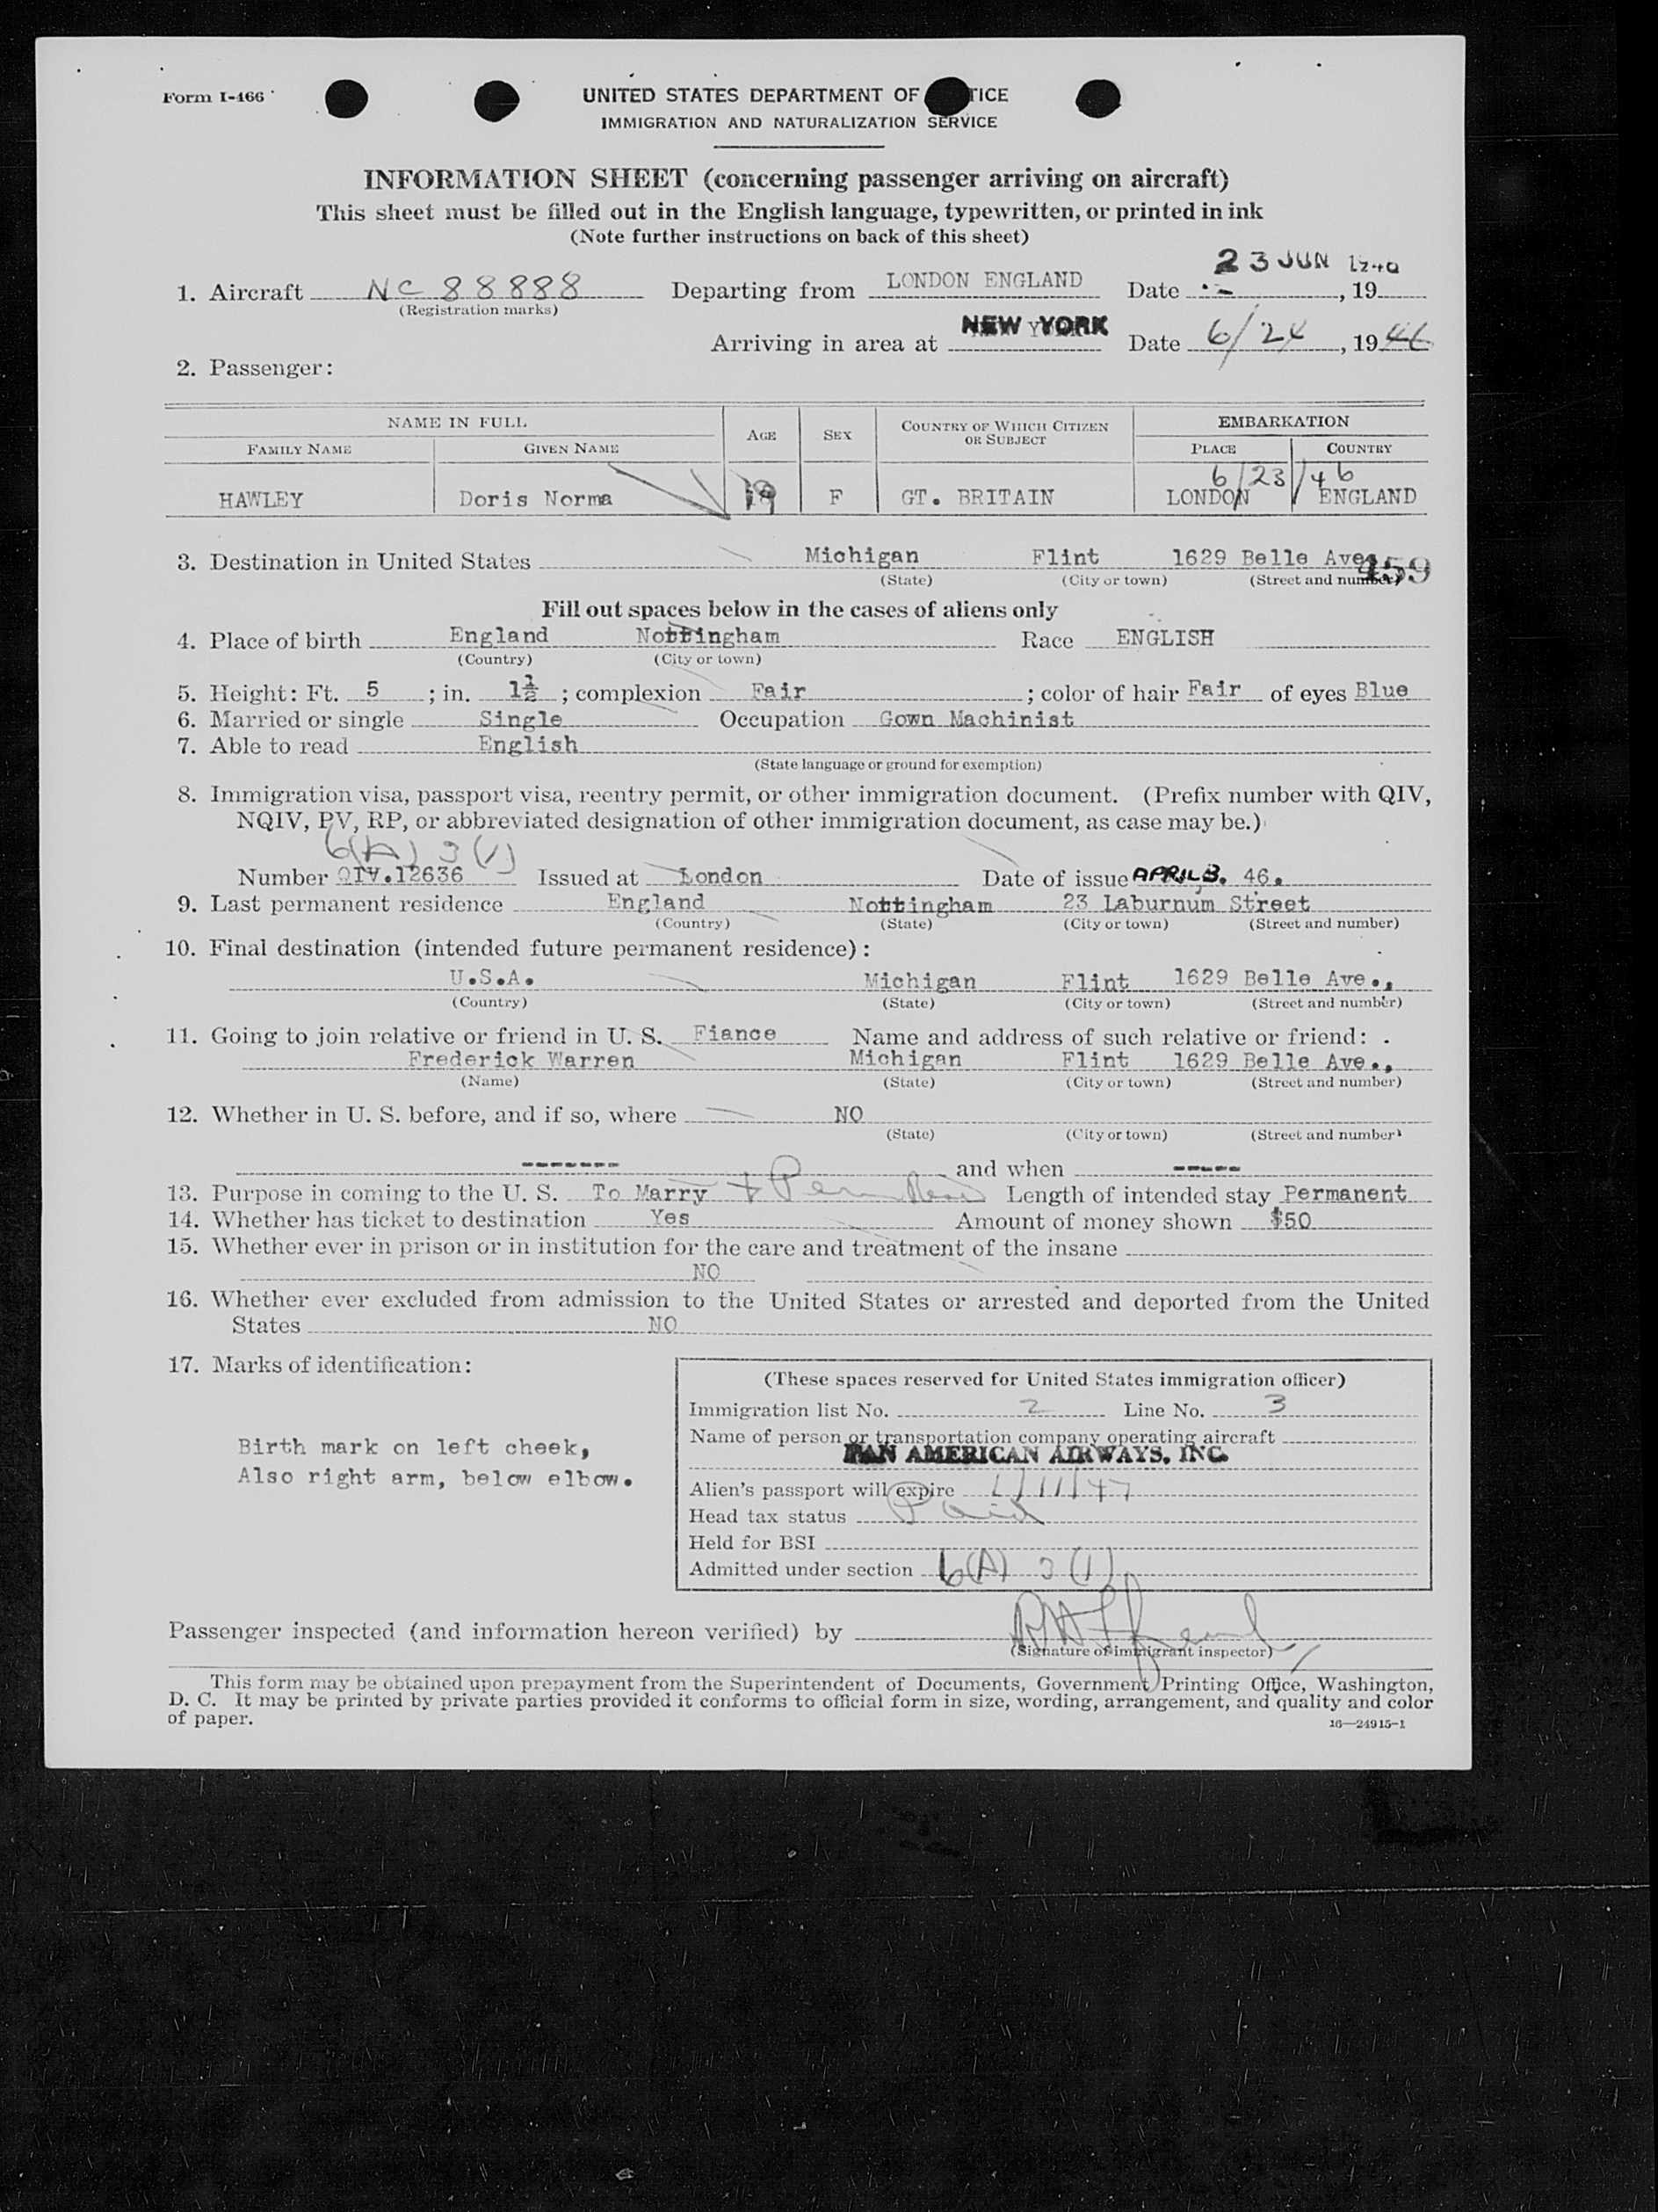 Form I-466
UNITED STATES DEPARTMENT OF TICE
IMMIGRATION AND NATURALIZATION SERVICE
INFORMATION SHEET (concerning passenger arriving on aircraft)
This sheet must be filled out in the English language, typewritten, or printed in ink
(Note further instructions on back of this sheet)
23 JUN 1946
1. Aircraft NC 88888 Departing from LONDON ENGLAND Date , 19
(Registration marks)
Arriving in area at NEW YORK Date 6/24, 1946
2. Passenger:
NAME IN FULL AGE SEX COUNTRY OF WHICH CITIZEN OR SUBJECT EMBARKATION
FAMILY NAME GIVEN NAME PLACE COUNTRY
6/23/46
HAWLEY Doris Norma 19 F GT. BRITAIN LONDON ENGLAND
3. Destination in United States Michigan Flint 1629 Belle Ave. 459
(State) (City or town) (Street and number)
Fill out spaces below in the cases of aliens only
4. Place of birth England Nottingham Race ENGLISH
(Country) (City or town)
5. Height: Ft. 5 ; in. 1½ ; complexion Fair ; color of hair Fair of eyes Blue
6. Married or single Single Occupation Gown Machinist
7. Able to read English
(State language or ground for exemption)
8. Immigration visa, passport visa, reentry permit, or other immigration document. (Prefix number with QIV,
NQIV, PV, RP, or abbreviated designation of other immigration document, as case may be.)
6(A) 3(1)
Number QIV.12636 Issued at London Date of issue APRIL 3. 46.
9. Last permanent residence England Nottingham 23 Laburnum Street
(Country) (State) (City or town) (Street and number)
10. Final destination (intended future permanent residence):
U.S.A. Michigan Flint 1629 Belle Ave.,
(Country) (State) (City or town) (Street and number)
11. Going to join relative or friend in U. S. Fiance Name and address of such relative or friend:
Frederick Warren Michigan Flint 1629 Belle Ave.,
(Name) (State) (City or town) (Street and number)
12. Whether in U. S. before, and if so, where NO
(State) (City or town) (Street and number)
------- and when -----
13. Purpose in coming to the U. S. To Marry + Perm Res Length of intended stay Permanent
14. Whether has ticket to destination Yes Amount of money shown $50
15. Whether ever in prison or in institution for the care and treatment of the insane
NO
16. Whether ever excluded from admission to the United States or arrested and deported from the United
States NO
17. Marks of identification:
Birth mark on left cheek,
Also right arm, below elbow.
(These spaces reserved for United States immigration officer)
Immigration list No. 2 Line No. 3
Name of person or transportation company operating aircraft
PAN AMERICAN AIRWAYS, INC.
Alien's passport will expire /11/47
Head tax status Paid
Held for BSI
Admitted under section 6(A) 3(1)
Passenger inspected (and information hereon verified) by
(Signature of immigrant inspector)
This form may be obtained upon prepayment from the Superintendent of Documents, Government Printing Office, Washington,
D. C. It may be printed by private parties provided it conforms to official form in size, wording, arrangement, and quality and color
of paper.
16—24915-1